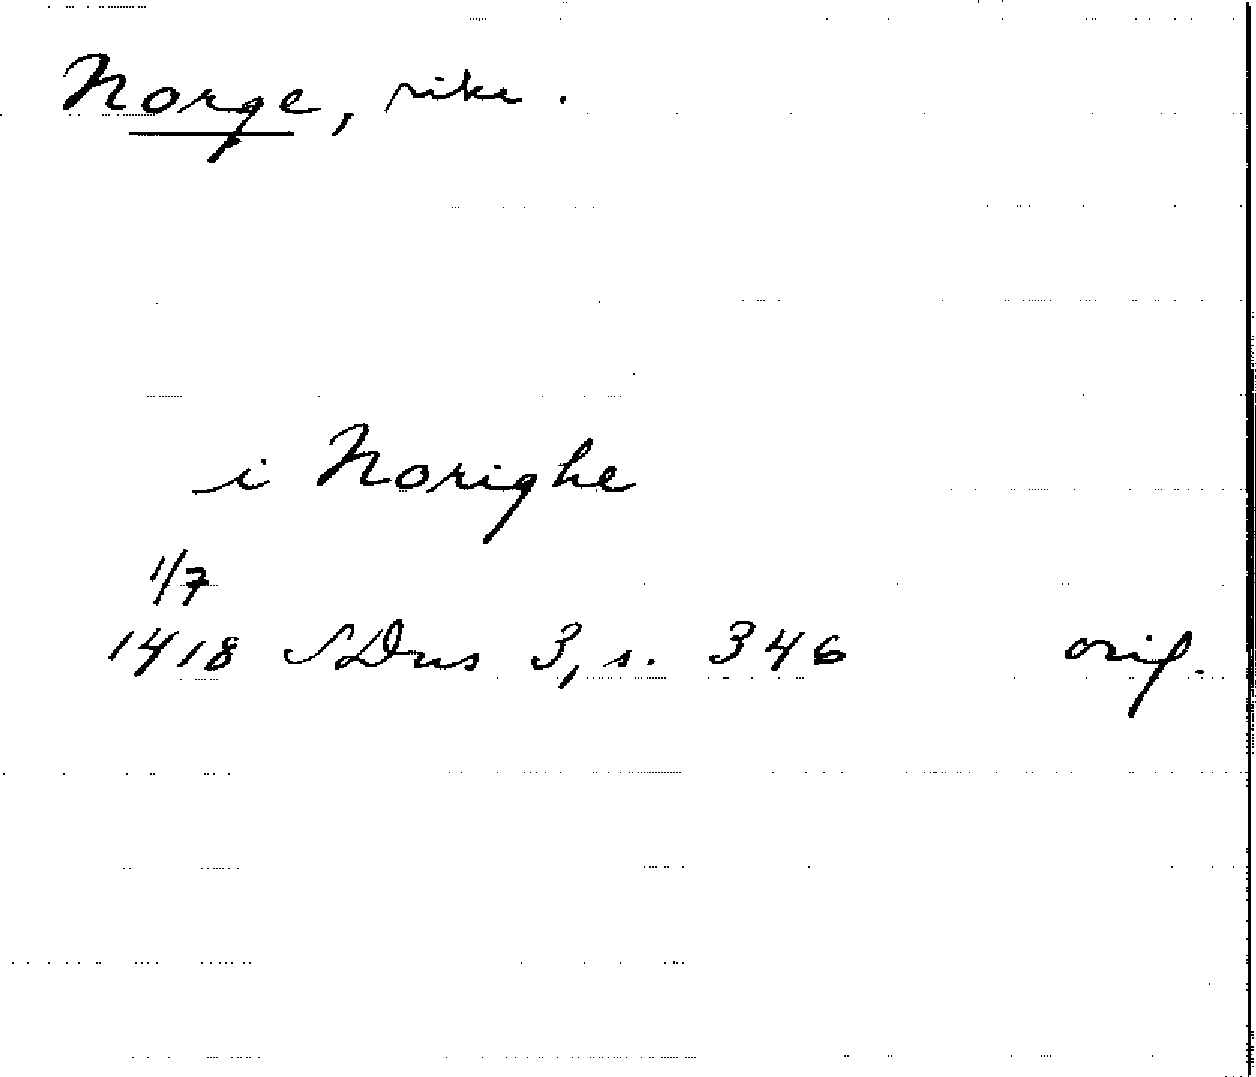 Norge, rike.
i Norighe
1/7
1418 SDns 3, s. 346 orig.